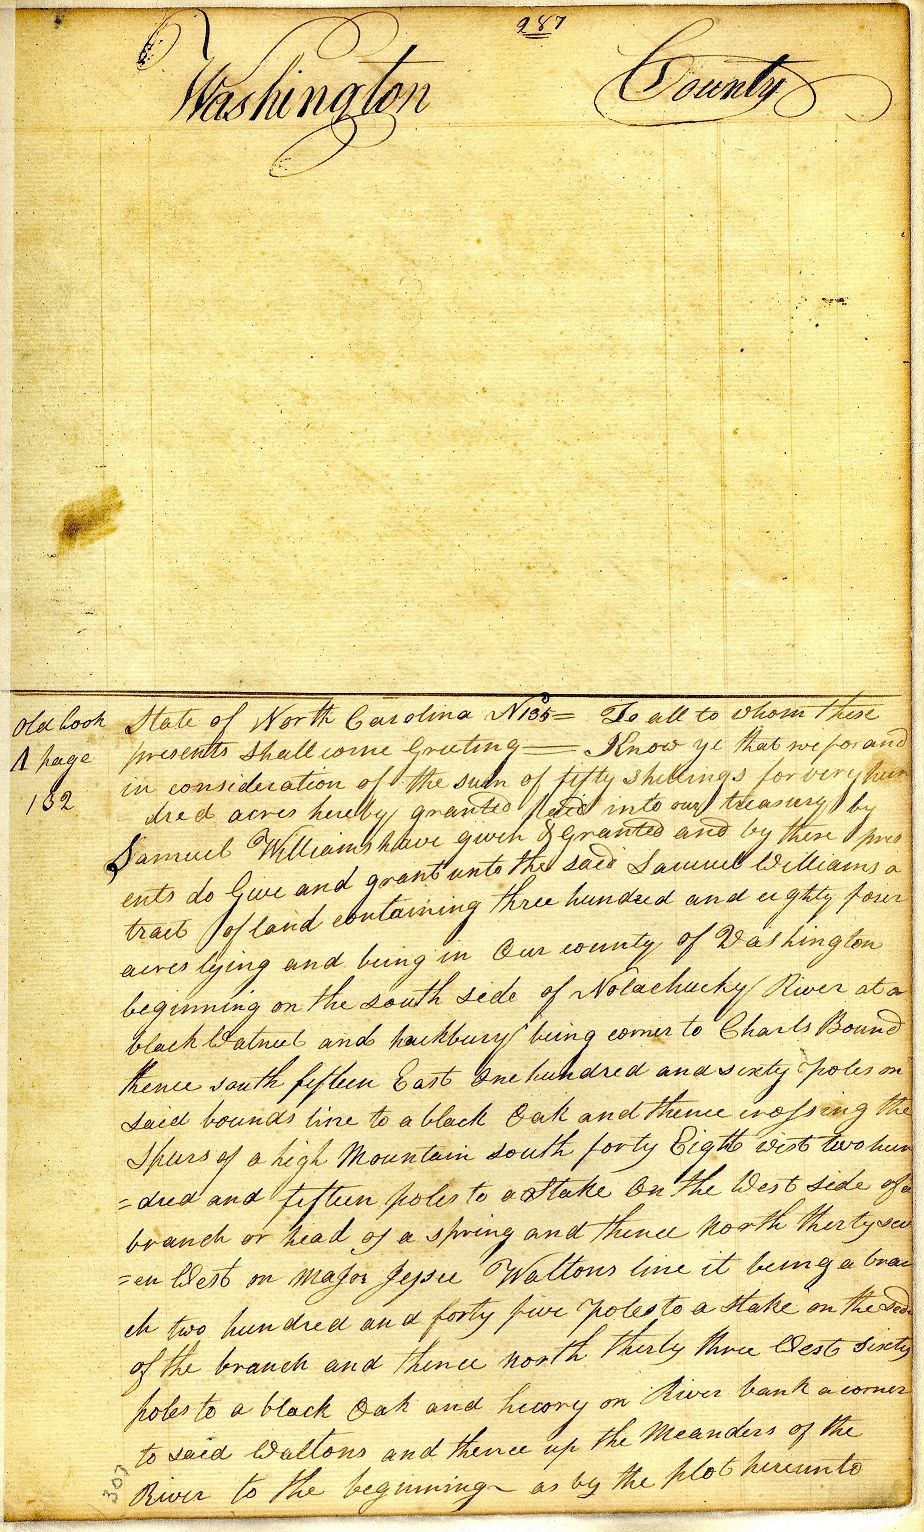 287
Washington County
Old book
A page
132
State of North Carolina No 135 = To all to whom these
presents Shall come Greeting — Know ye that we for and
in consideration of the sum of fifty Shillings for very hun
dred acres hereby granted paid into our treasury by
Samuel Williams have given & Granted and by these pres
ents do Give and grant unto the said Samuel Williams a
tract of land containing three hundred and eighty four
acres lying and being in Our county of Washington
beginning on the south side of Nolachucky River at a
black Walnut and hackbury being corner to Charls Bound
thence south fifteen East One hundred and sixty poles on
said bounds line to a black Oak and thence crossing the
Spurs of a high Mountain south forty Eight west two hun
=dred and fifteen poles to a Stake On the West side of a
branch or head of a spring and thence North thirty sev
=en West on Major Jessee Waltons line it being a bran
ch two hundred and forty five poles to a Stake on the side
of the branch and thence north thirty three West sixty
poles to a black Oak and hicory on River bank a corner
to said Waltons and thence up the Meanders of the
River to the beginning as by the plot hereunto
307